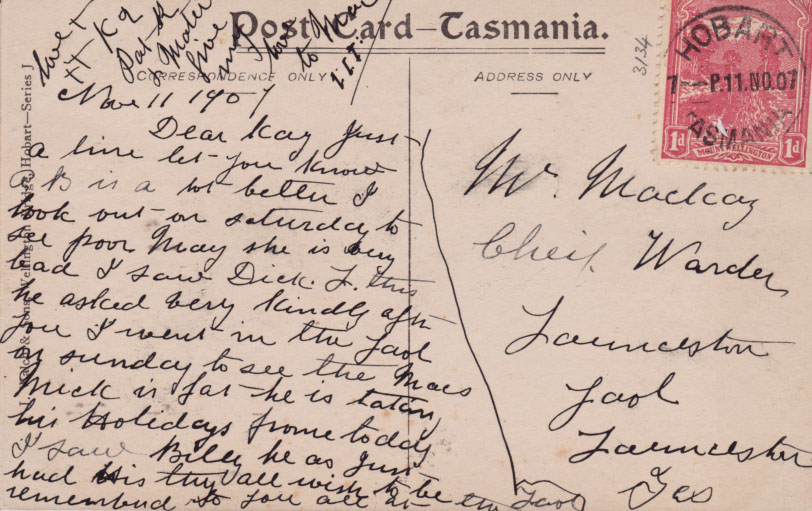 Post Card—Tasmania.
CORRESPONDENCE ONLY
ADDRESS ONLY
3/34
HOBART
7 P.11.NO.07
TASMANIA
1d 1d
Hobart—Series J
Nove 11 1907
Dear Kay Just
a line let you know
B is a lot better I
took out on saturday to
see poor May she is very
bad I saw Dick. J. this
he asked very kindly after
you I went in the Jaol
on sunday to see the Macs
Mick is fat he is
his Holidays frome today
I saw Billy he as Just
had his all wish to be
rememberd to you all at the Jaol
love to
Pat
give
I have
to
Mr. Mackay
Cheif Warder
Launceston
Jaol
Launceston
Tas